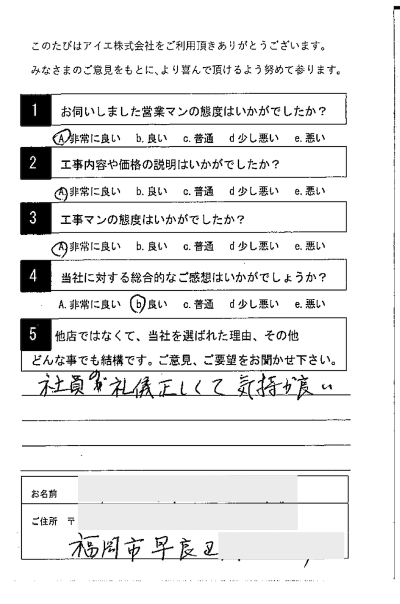 このたびはアイエ株式会社をご利用頂きありがとうございます。
みなさまのご意見をもとに、より喜んで頂けるよう努めて参ります。
1 お伺いしました営業マンの態度はいかがでしたか？
A.非常に良い b.良い c.普通 d少し悪い e.悪い
2 工事内容や価格の説明はいかがでしたか？
A.非常に良い b.良い c.普通 d少し悪い e.悪い
3 工事マンの態度はいかがでしたか？
A.非常に良い b.良い c.普通 d少し悪い e.悪い
4 当社に対する総合的なご感想はいかがでしょうか？
A.非常に良い b良い c.普通 d少し悪い e.悪い
5 他店ではなくて、当社を選ばれた理由、その他
どんな事でも結構です。ご意見、ご要望をお聞かせ下さい。
社員が礼儀正しくて気持が良い
お名前
ご住所 〒
福岡市早良区